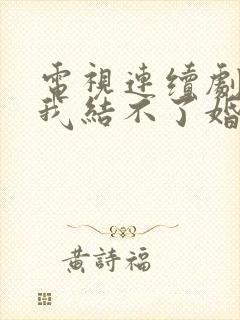 電視連續劇
我結不了婚
黃詩福